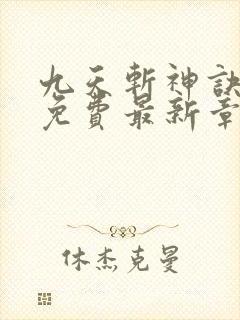 九天斬神訣
免費最新章
休杰克曼